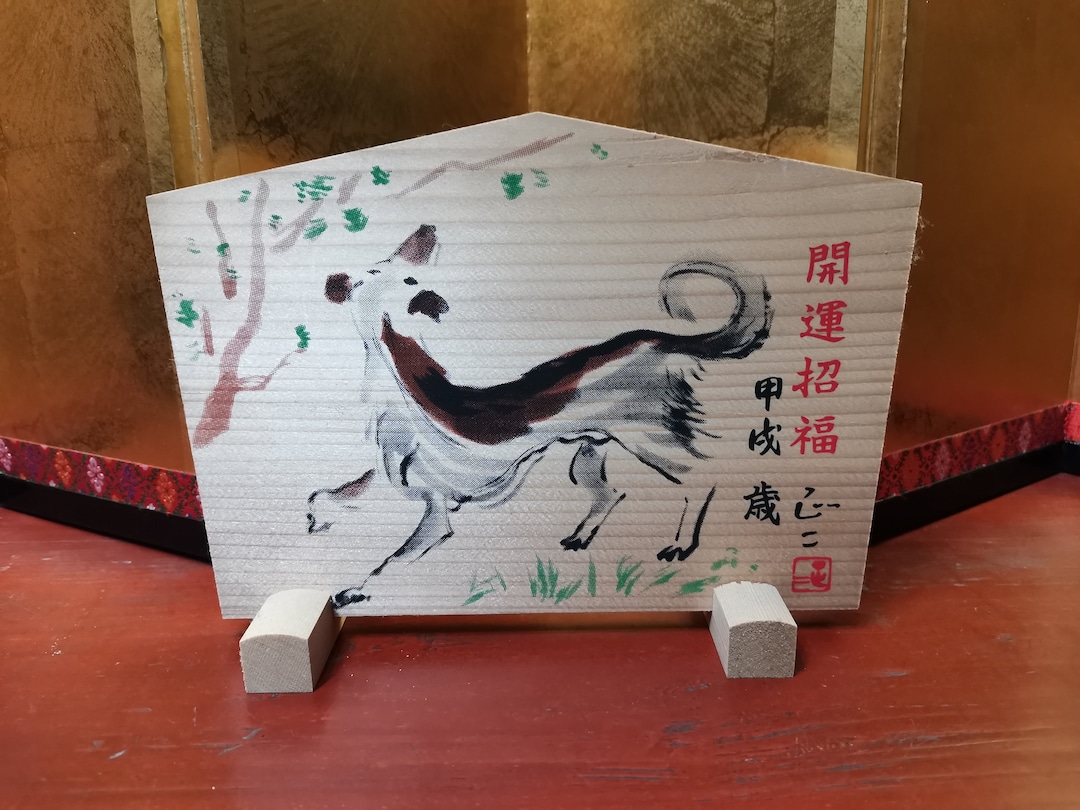 開運招福
甲戌歳
正二